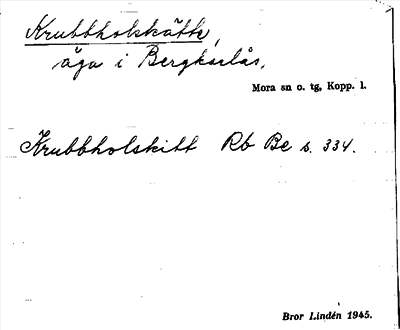 Krubbholskätte,
äga i Bergkarlås,
Mora sn o. tg, Kopp. l.
Krubbholskitt Rb Be s. 334.
Bror Lindén 1945.